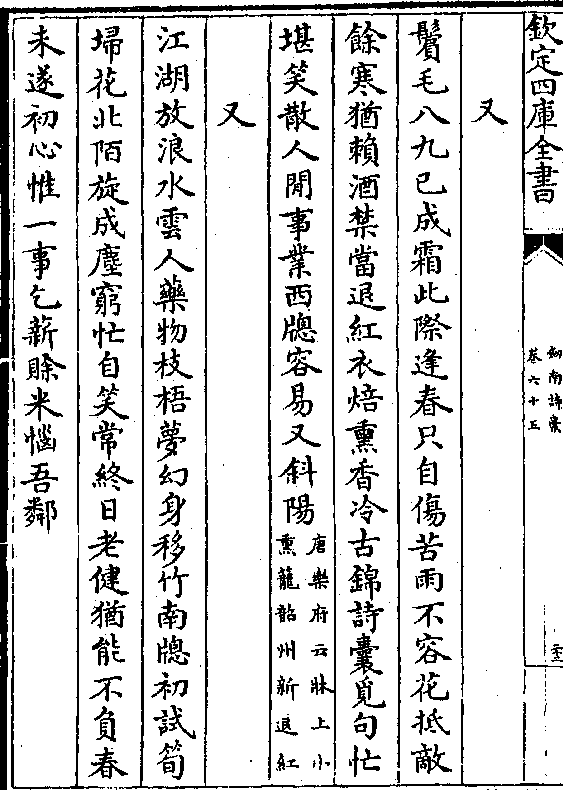 欽定四庫全書
劍南詩稾
卷六十五
又
鬢毛八九已成霜此際逢春只自傷苦雨不容花抵敵
餘寒猶賴酒禁當退紅衣焙熏香冷古錦詩囊覓句忙
堪笑散人閒事業西牕容易又斜陽唐樂府云牀上小
熏籠韶州新退紅
又
江湖放浪水雲人藥物枝梧夢幻身移竹南牕初試筍
埽花北陌旋成塵窮忙自笑常終日老健猶能不負春
未遂初心惟一事乞薪賖米惱吾鄰